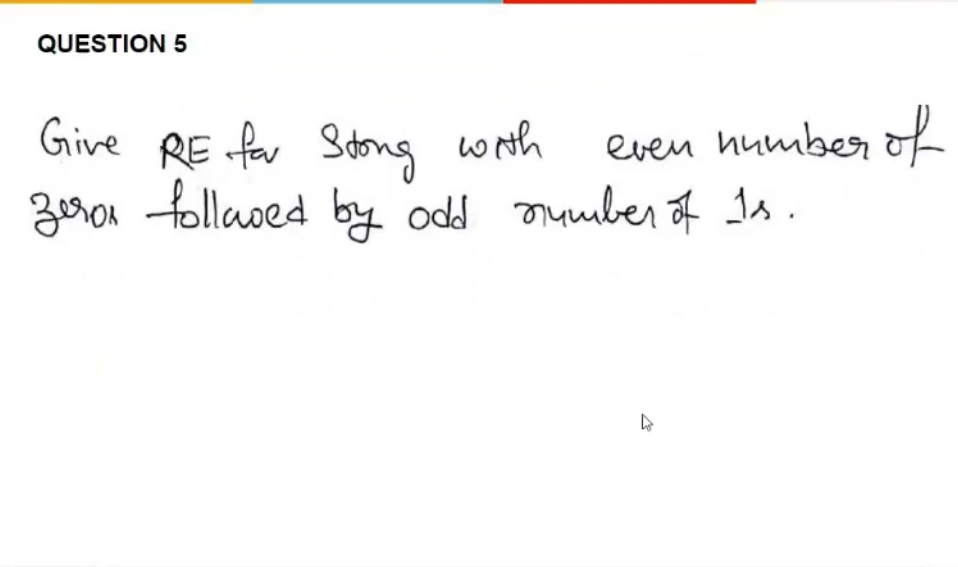 QUESTION 5
Give RE for String with even number of
zeros followed by odd number of 1s.